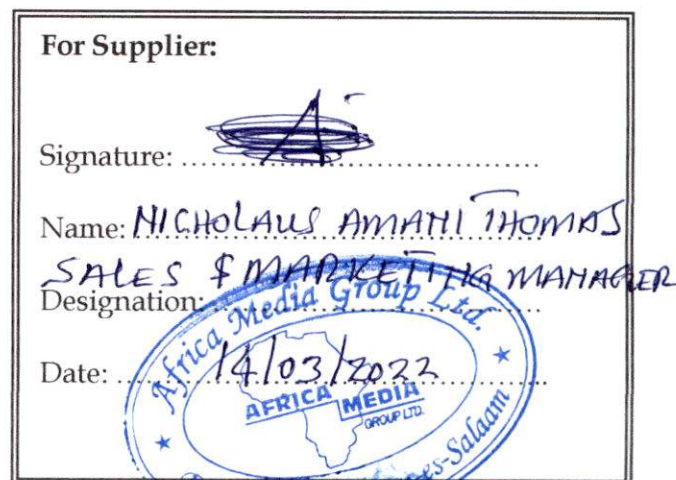 For Supplier:
Signature: ........................................
Name: NICHOLAUS AMANI THOMAS
SALES & MARKETING MANAGER
Designation: ........................................
Africa Media Group Ltd.
Date: 14/03/2022
AFRICA MEDIA
GROUP LTD.
es-Salaam